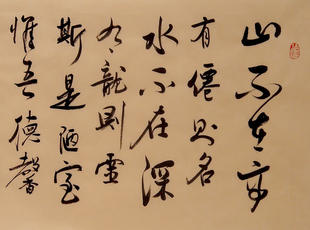 山不在高
有僊则名
水不在深
有龍则靈
斯是陋室
惟吾德馨